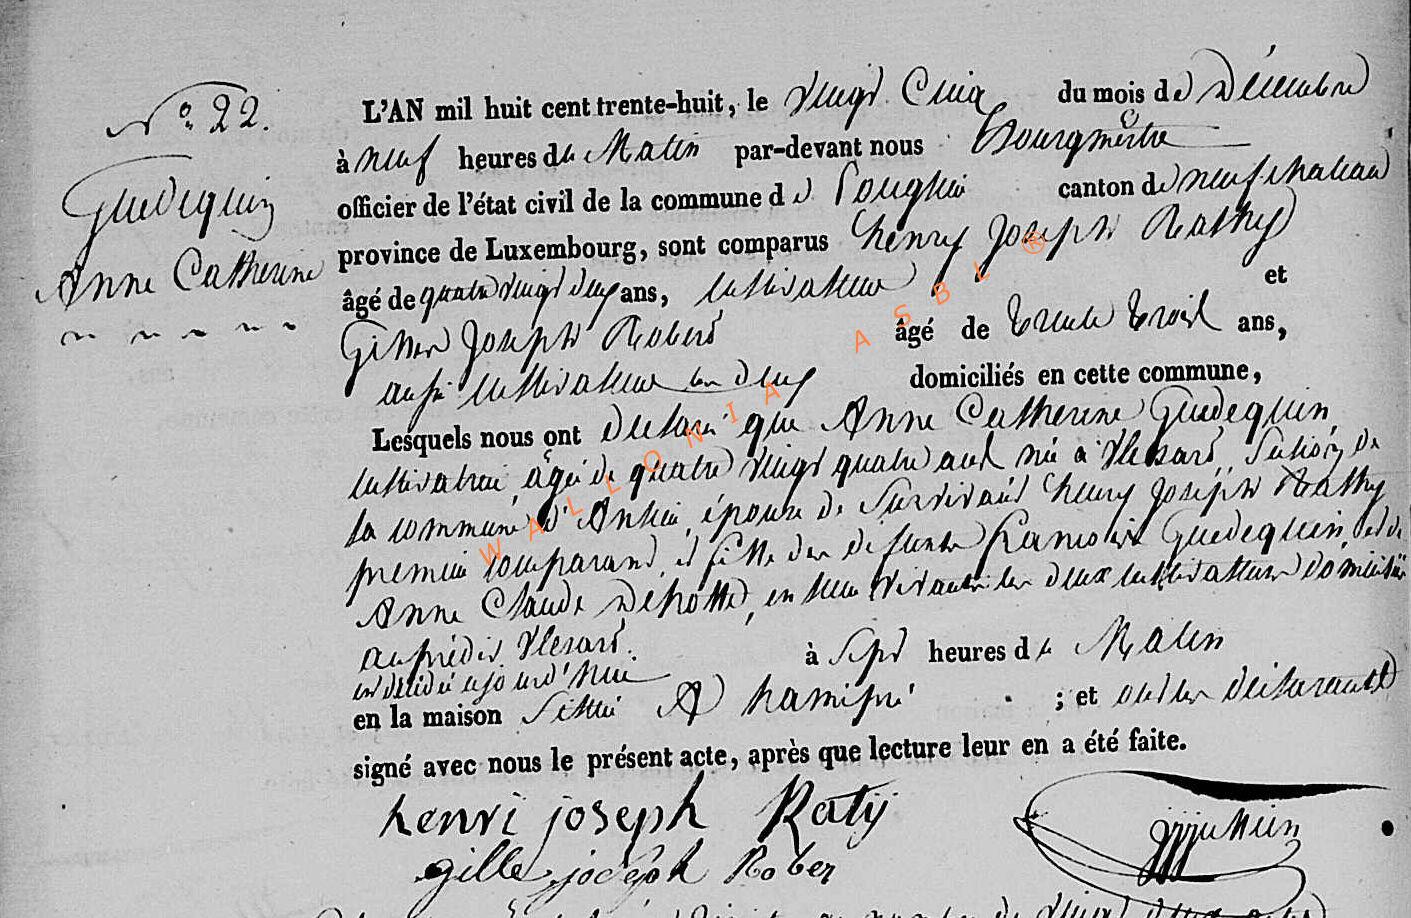 N.º 22.
Guedequin
Anne Catherine
L'AN mil huit cent trente-huit, le vingt Cinq du mois de Décembre
à neuf heures du Matin par-devant nous Bourgmêtre
officier de l'état civil de la commune de canton de neufchateau
province de Luxembourg, sont comparus henry Joseph Rathy
âgé de quatre vingt deux ans, cultivateur et
Gille Joseph Robert âgé de trente trois ans,
aussi cultivateur les deux domiciliés en cette commune,
Lesquels nous ont déclaré que Anne Catherine Guedequin,
cultivatrice, agée de quatre vingt quatre ans née à Vlessard, Section de
la commune d'Anlier, épouse de Survivant henry Joseph Rathy
premier comparant, et fille des défunts Francois Guedequin, et de
Anne Claude en leur vivant les deux cultivateurs domiciliés
au prédit Vlessard.
est décédée aujourd'hui à Sept heures du Matin
en la maison Sittué A hamipré ; et ont les déclarants
signé avec nous le présent acte, après que lecture leur en a été faite.
henri joseph Raty
gille joseph Rober
WALLONIA ASBL ®